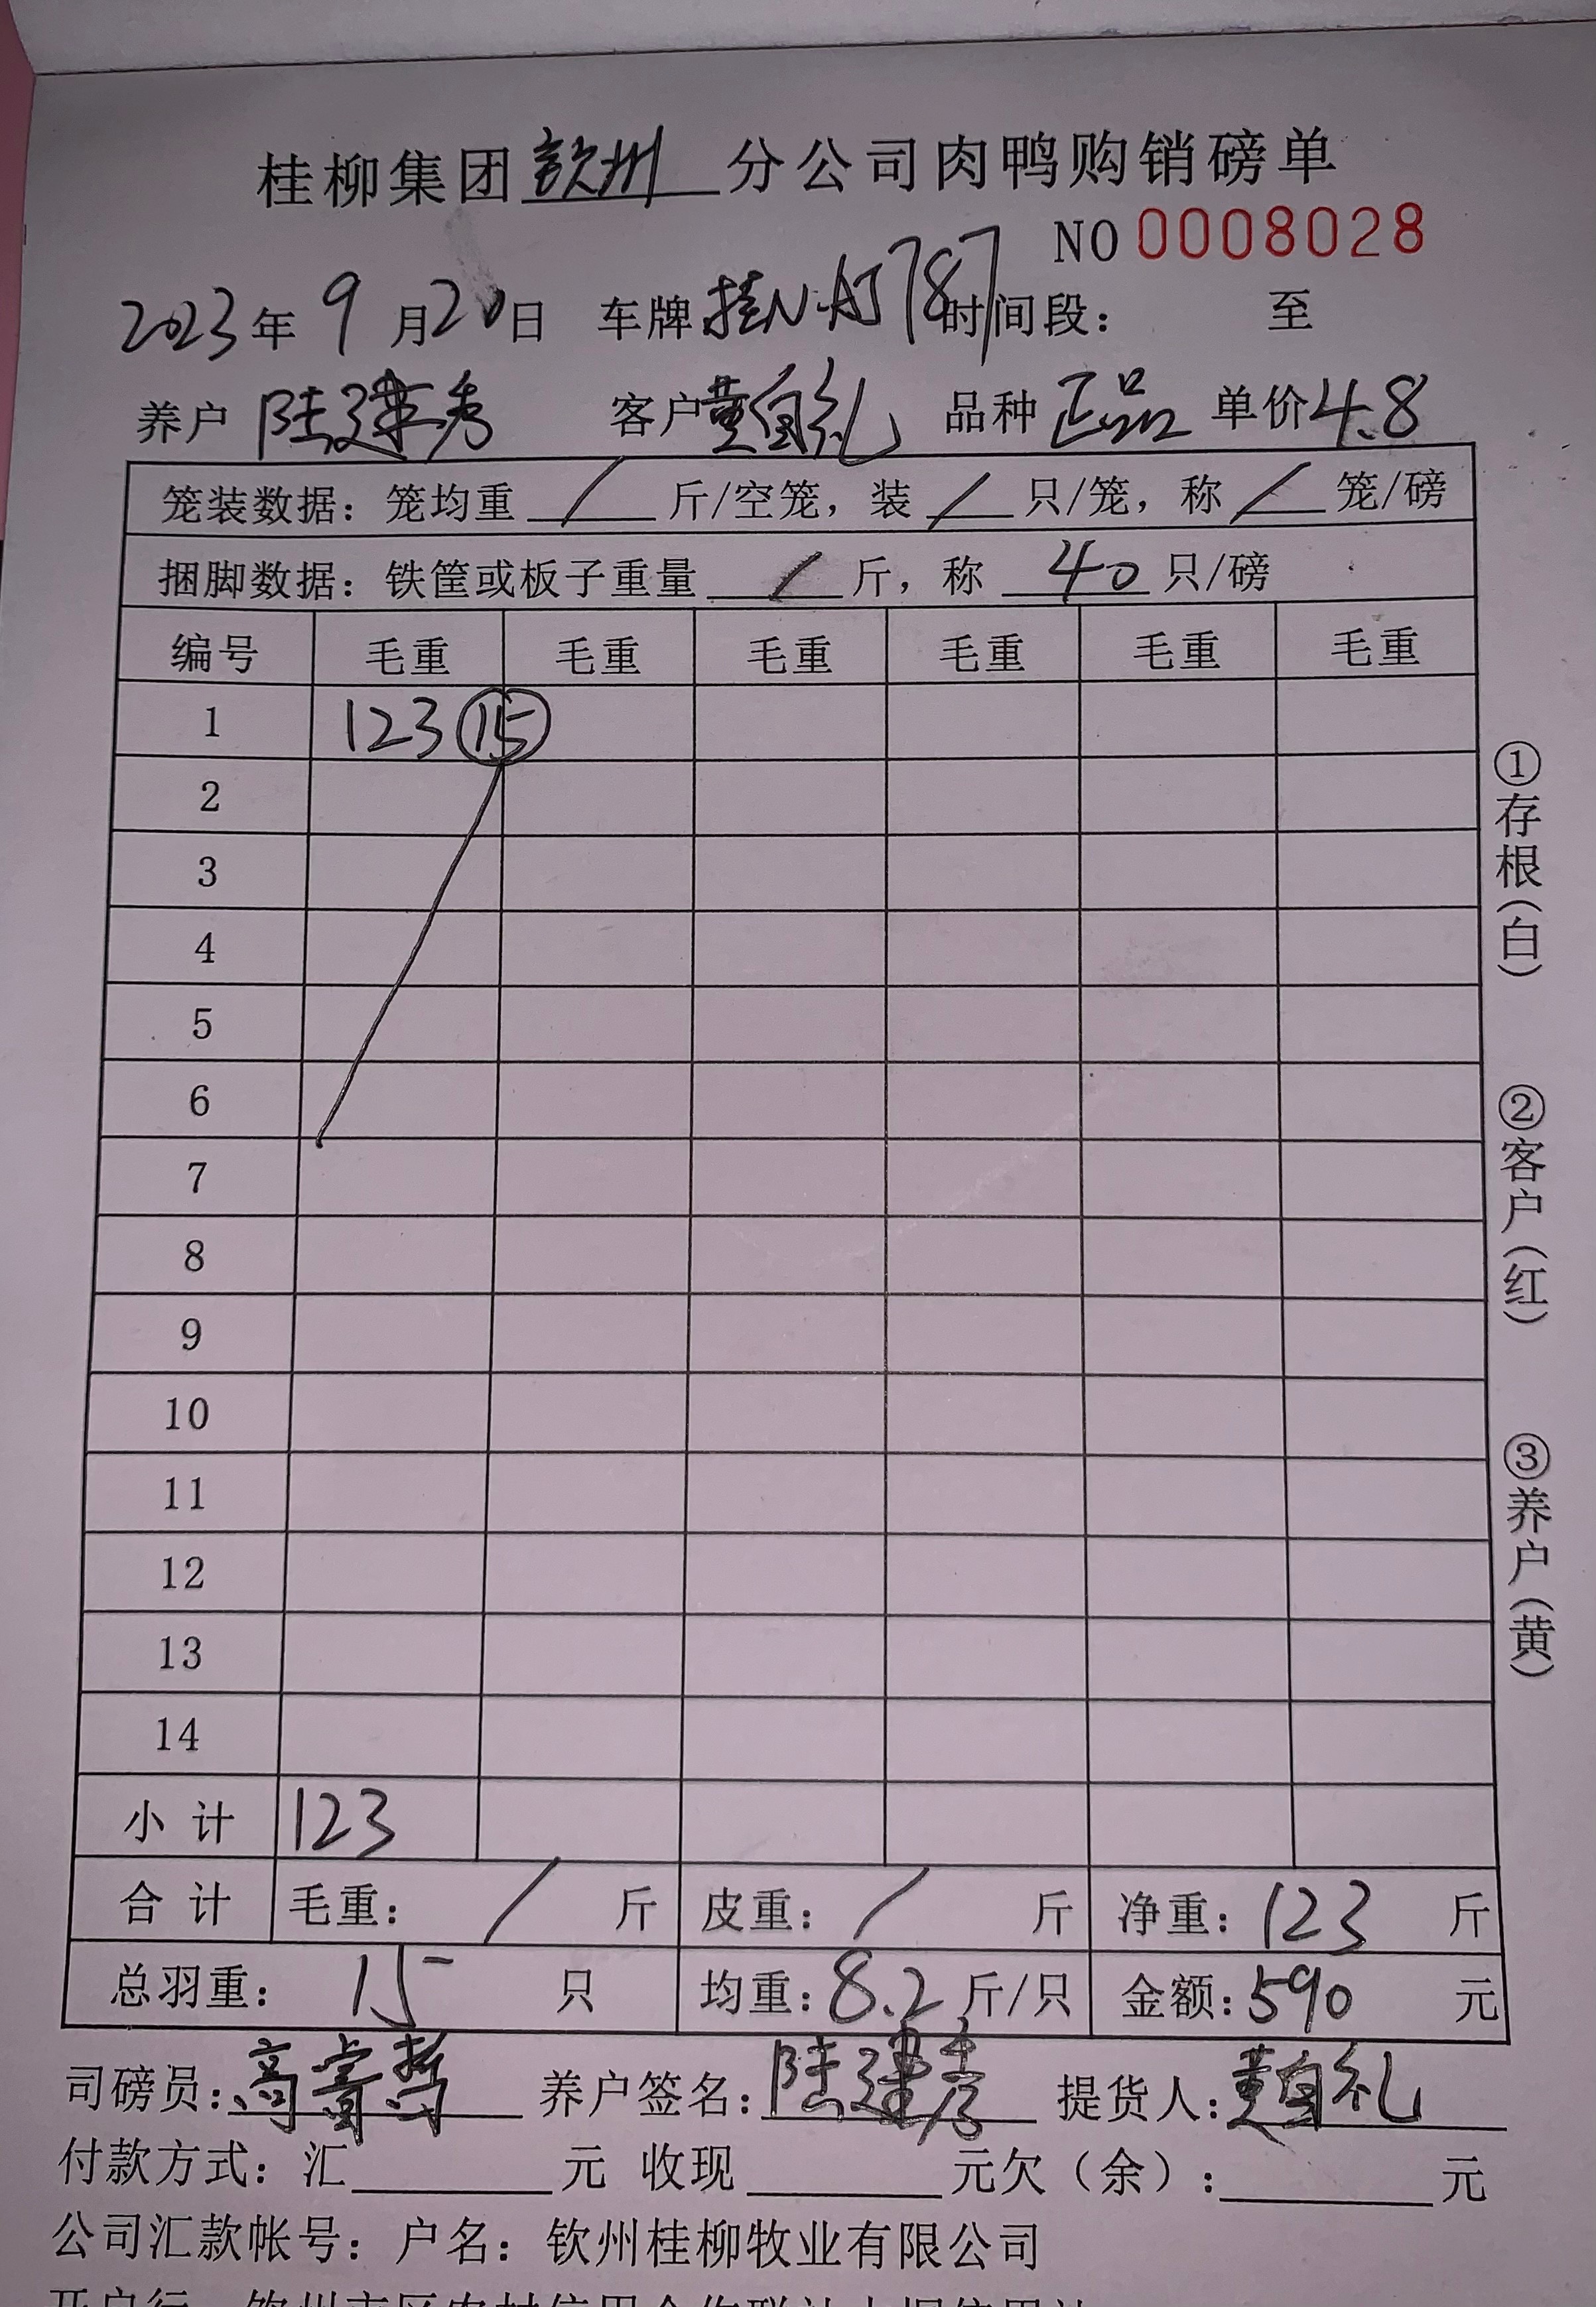 桂柳集团钦州分公司肉鸭购销磅单
NO 0008028
2023年 9月20日 车牌桂N·AJ787时间段： 至
养户 陆建秀 客户黄自礼 品种 正品 单价4.8
笼装数据：笼均重 / 斤/空笼，装 / 只/笼，称 / 笼/磅
捆脚数据：铁筐或板子重量 / 斤，称 40 只/磅
编号 毛重 毛重 毛重 毛重 毛重 毛重
1 123 ⑮
2
3
4
5
6
7
8
9
10
11
12
13
14
小 计 123
合 计 毛重： / 斤 皮重： / 斤 净重：123 斤
总羽重： 15 只 均重：8.2斤/只 金额：590 元
司磅员：高 养户签名：陆建秀 提货人：黄自礼
付款方式：汇 元 收现 元欠（余）： 元
公司汇款帐号：户名：钦州桂柳牧业有限公司
①存根（白）
②客户（红）
③养户（黄）